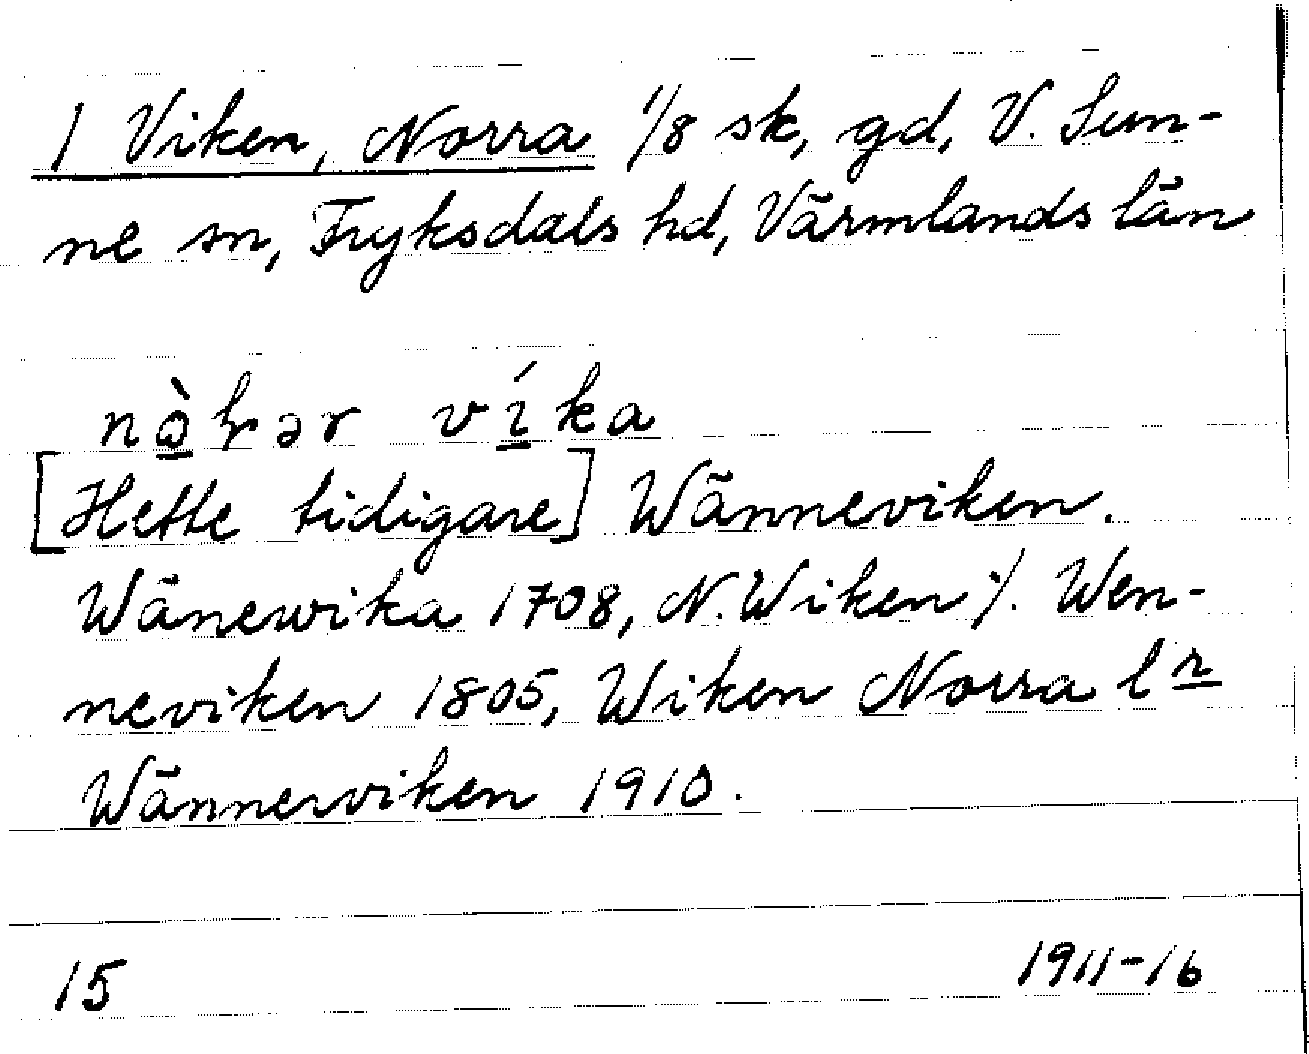 / Viken, Norra 1/8 sk, gd, V. Sun-
ne sn, Fryksdals hd, Värmlands län
víka
[Hette tidigare] Wänneviken.
Wänewika 1708, N. Wiken ./. Wen-
neviken 1805, Wiken Norra l r
Wänneviken 1910.
15 1911-16